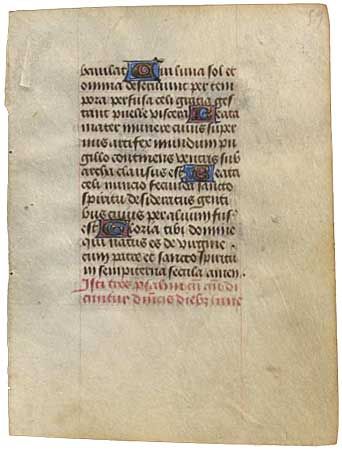 baiulat Cui luna sol et
omnia deserviunt per tem
pora perfusa celi gratia ges
tant puelle viscera Beata
mater munere cuius super
nus artifex mundum pu
gillo continens ventris sub
archa clausus est Beata
celi nuncio fecunda sancto
spiritu desideratus genti
bus cuius per alvum fus
est Gloria tibi domine
qui natus es de virgine
cum patre et sancto spiritu
in sempiterna secula amen
Isti tres psalmi
cuntur diebus